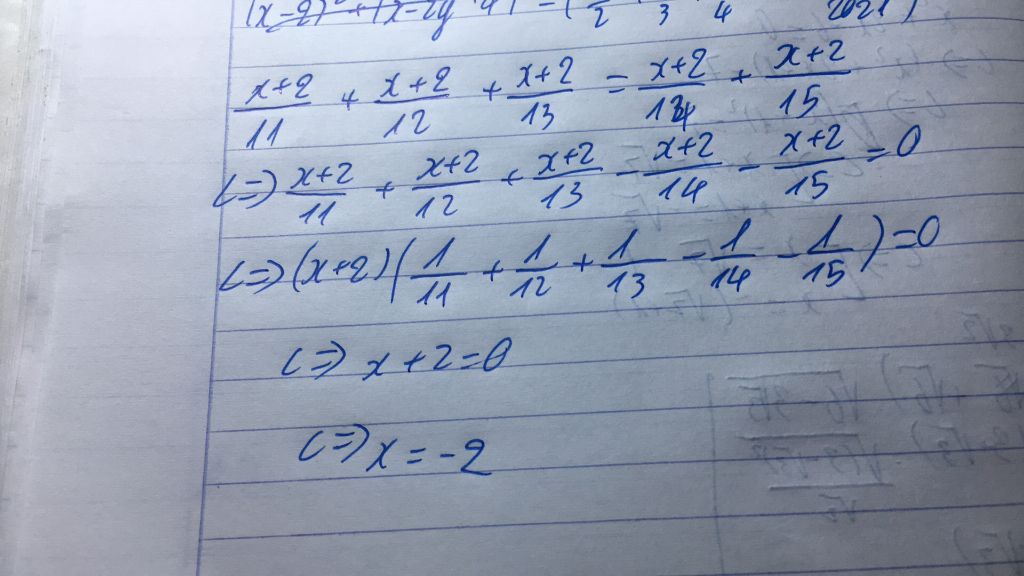 x+2/11 + x+2/12 + x+2/13 = x+2/14 + x+2/15
<=> x+2/11 + x+2/12 + x+2/13 - x+2/14 - x+2/15 = 0
<=> (x+2)(1/11 + 1/12 + 1/13 - 1/14 - 1/15) = 0
<=> x+2=0
<=> x=-2